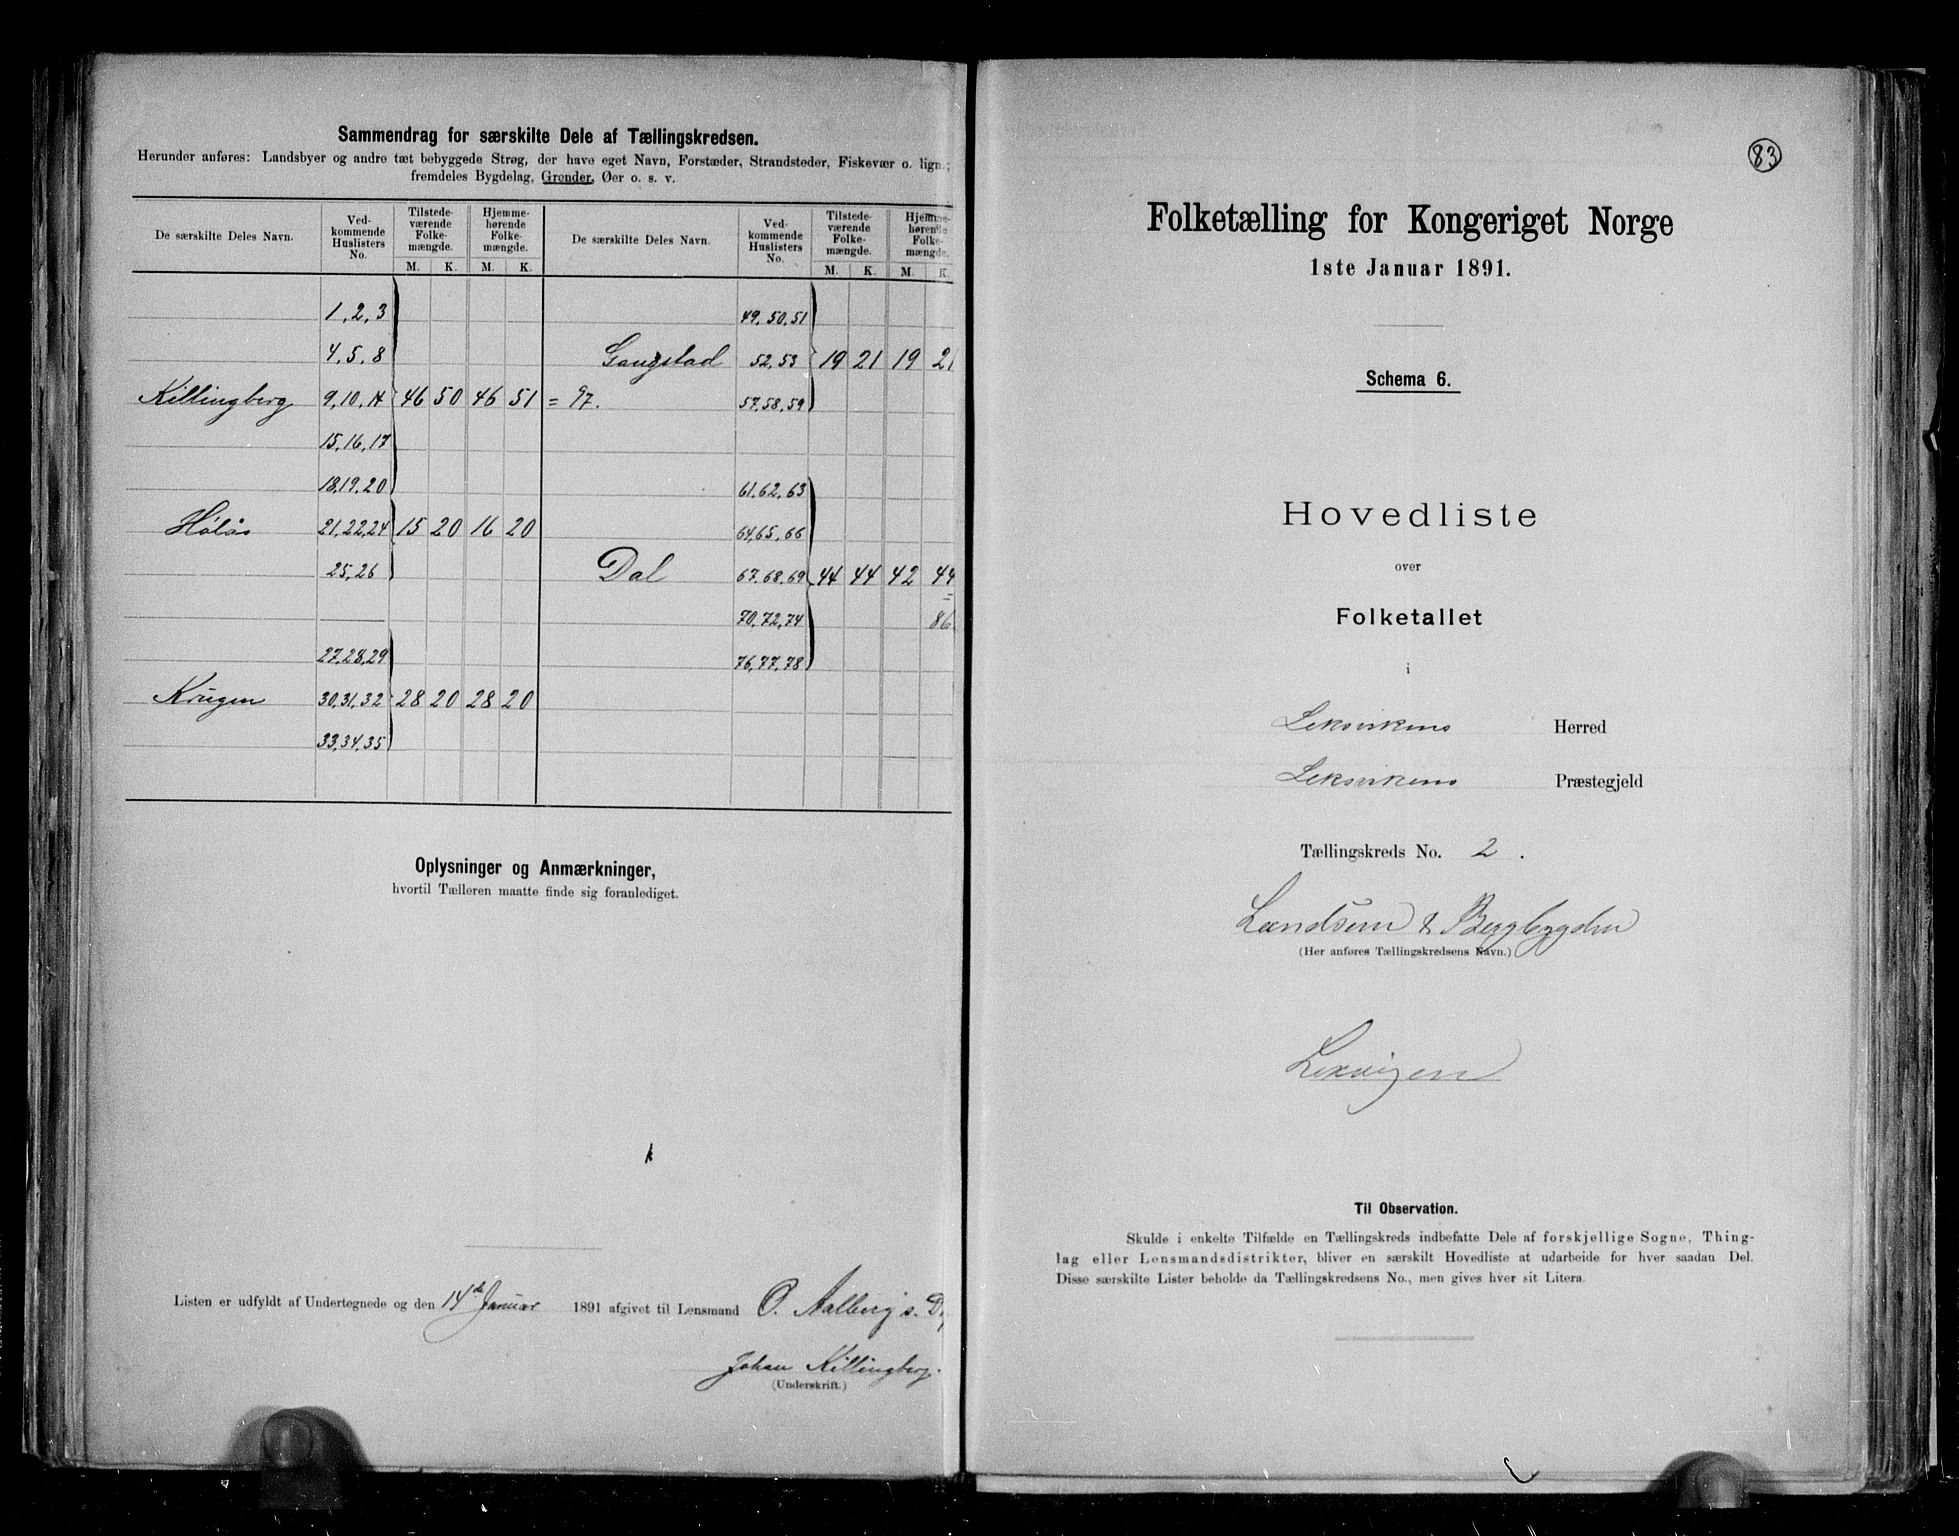 Sammendrag for særskilte Dele af Tællingskredsen.
Herunder anføres: Landsbyer og andre tæt bebyggede Strøg, der have eget Navn, Forstæder, Strandsteder, Fiskevær o. lign.;
fremdeles Bygdelag, Grender, Øer o. s. v.
De særskilte Deles Navn. Ved-kommende Huslisters No. Tilstede-værende Folke-mængde. Hjemme-hørende Folke-mængde. De særskilte Deles Navn. Ved-kommende Huslisters No. Tilstede-værende Folke-mængde. Hjemme-hørende Folke-mængde.
M. K. M. K. M. K. M. K.
1, 2, 3 49, 50, 51
4, 5, 8 Gangstad 52, 53 19 21 19 21
Killingberg 9, 10, 14 46 50 46 51 = 97. 57, 58, 59
15, 16, 17
18, 19, 20 61, 62, 63
Hølås 21, 22, 24 15 20 16 20 64, 65, 66
25, 26 Dal 67, 68, 69 44 44 42 44
=
70, 72, 74 86
27, 28, 29 76, 77, 78
Krügen 30, 31, 32 28 20 28 20
33, 34, 35
Oplysninger og Anmærkninger,
hvortil Tælleren maatte finde sig foranlediget.
Listen er udfyldt af Undertegnede og den 14de Januar 1891 afgivet til Lensmand O. Aalberg s.
Johan Killingberg.
(Underskrift.)
83
Folketælling for Kongeriget Norge
1ste Januar 1891.
Schema 6.
Hovedliste
over
Folketallet
i
Leksvikens Herred
Leksvikens Præstegjeld
Tællingskreds No. 2.
Landsem & Bergbygden
(Her anføres Tællingskredsens Navn.)
Lexvigen
Til Observation.
Skulde i enkelte Tilfælde en Tællingskreds indbefatte Dele af forskjellige Sogne, Thing-
lag eller Lensmandsdistrikter, bliver en særskilt Hovedliste at udarbeide for hver saadan Del.
Disse særskilte Lister beholde da Tællingskredsens No., men gives hver sit Litera.